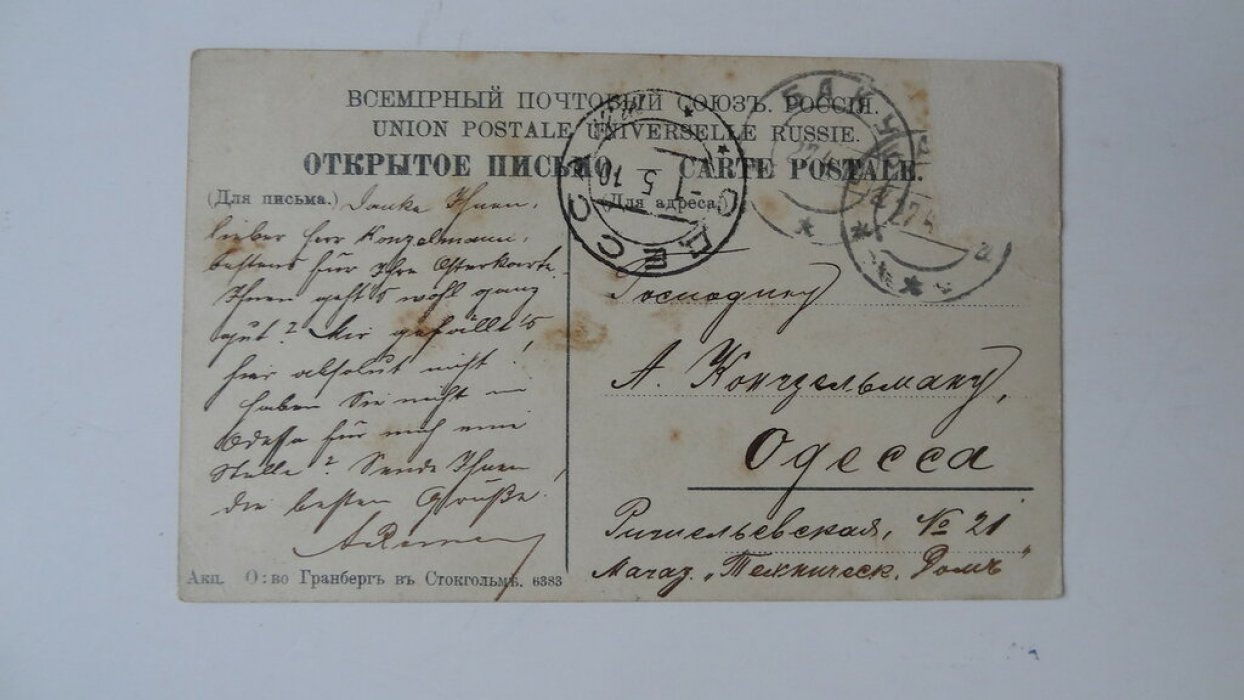 ВСЕМІРНЫЙ ПОЧТОВЫЙ СОЮЗЪ. РОССІЯ.
UNION POSTALE UNIVERSELLE RUSSIE.
ОТКРЫТОЕ ПИСЬМО — CARTE POSTALE.
(Для письма.)
(Для адреса.)
Danke Ihnen,
lieber Herr Konzelmann,
bestens für Ihre Osterkarte.
Ihnen geht's wohl ganz
gut? Mir gefällt's
hier absolut nicht!
Haben Sie nicht in
Odessa für mich eine
Stelle? Sende Ihnen
die besten Grüße!
Господину
А. Концельману,
Одесса
Ришельевская, № 21
Магаз. „Техническ. Домъ"
Акц. О:во Гранбергъ въ Стокгольмѣ. 6383
ОДЕССА
-1 5 10
БАКУ
27 4